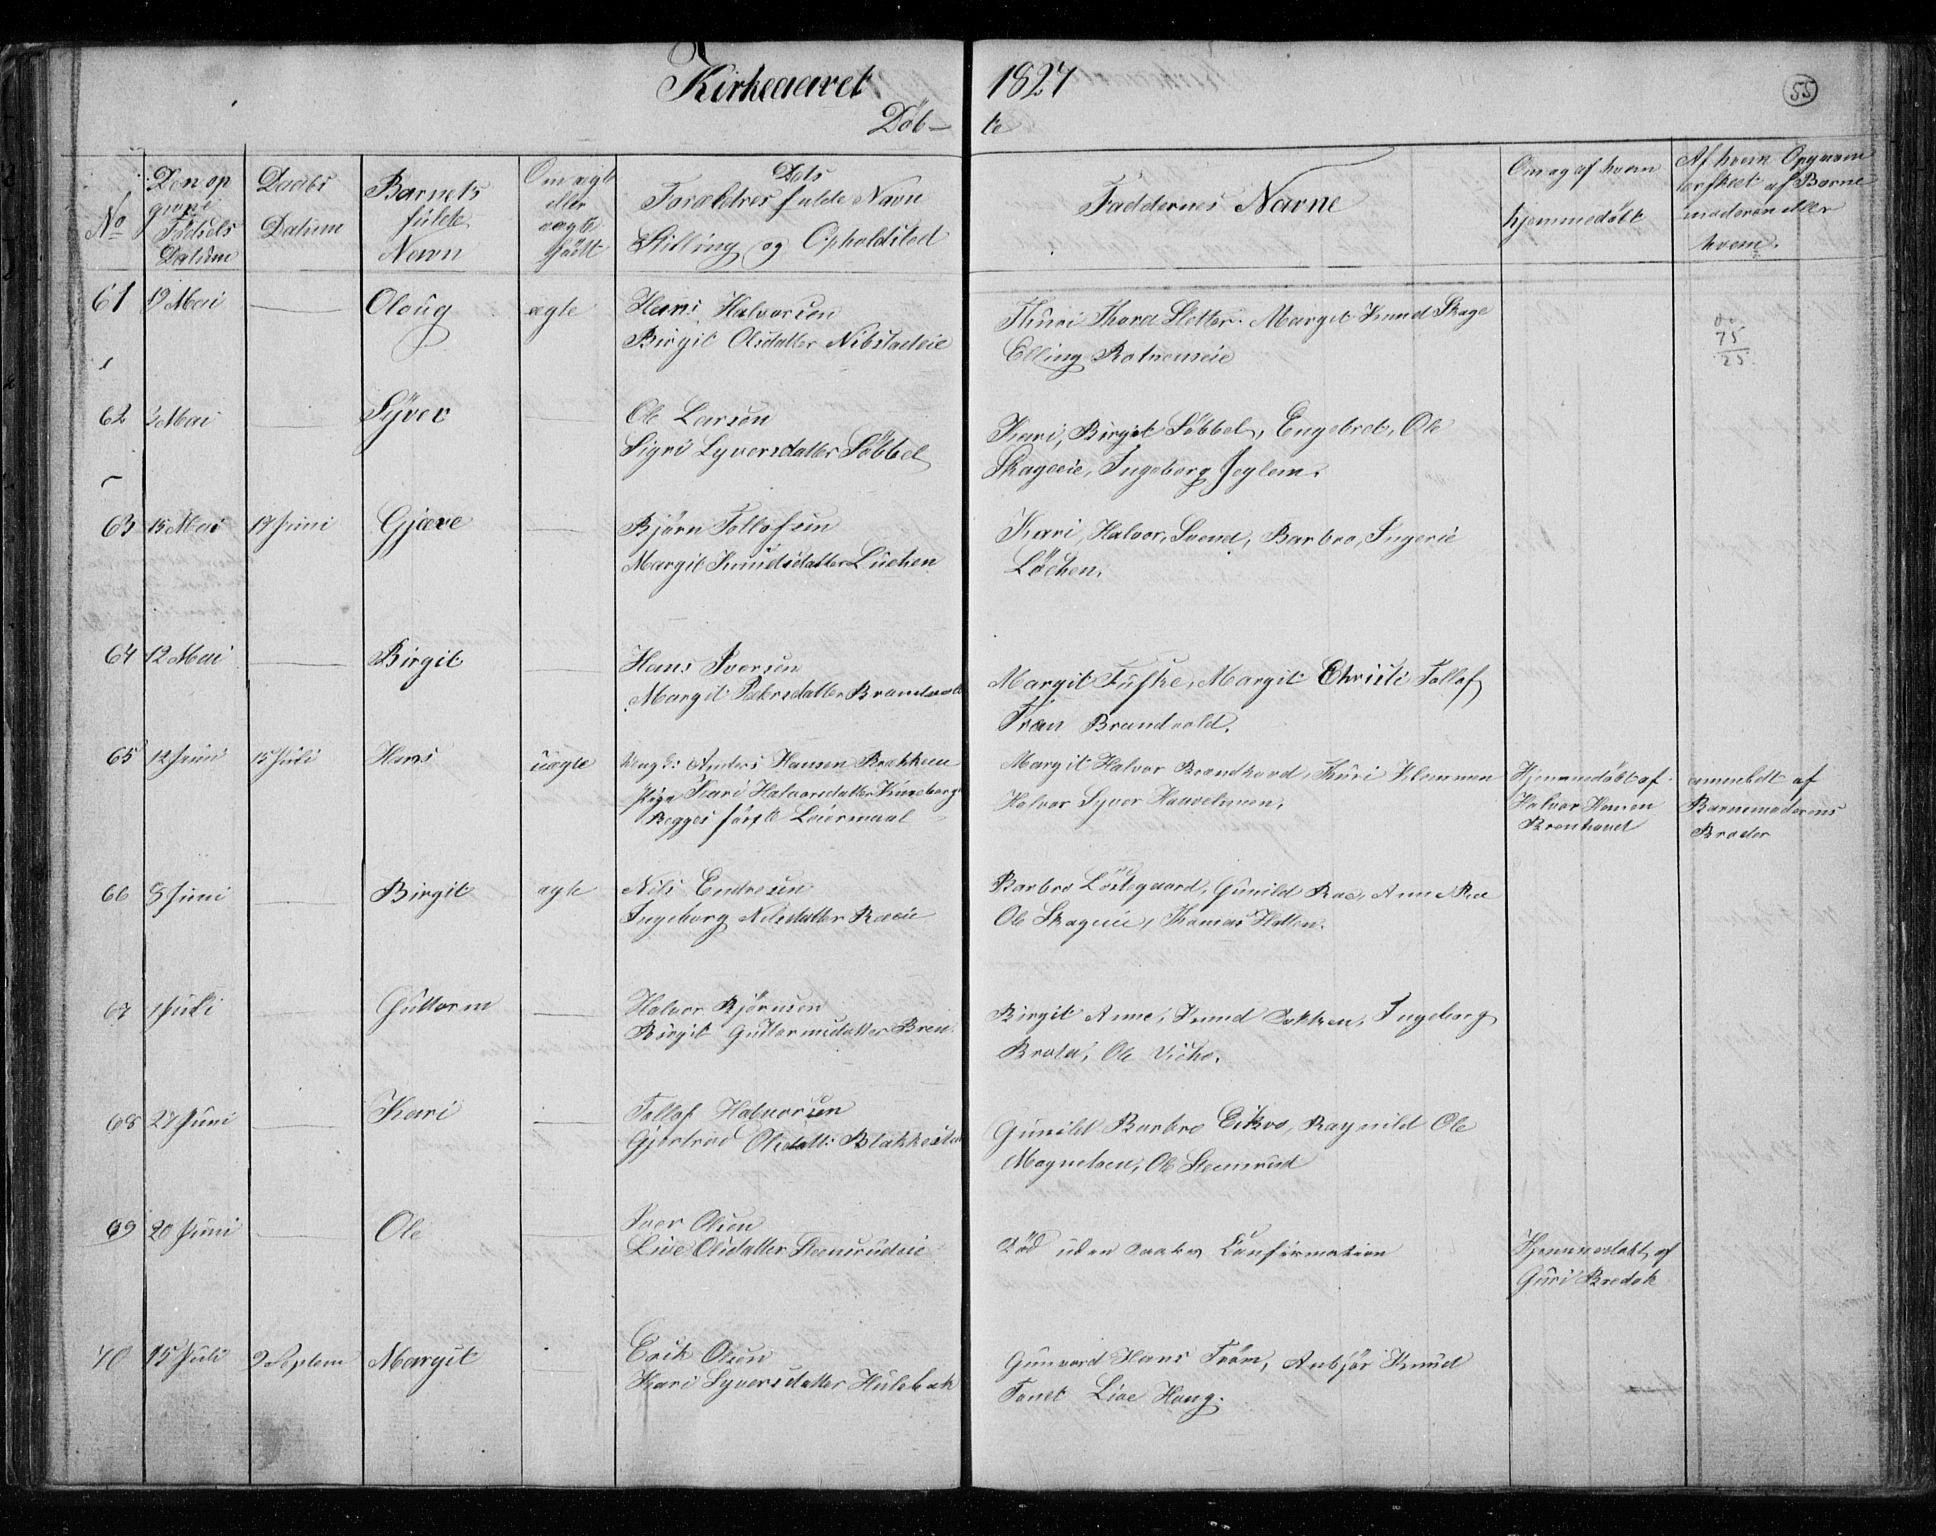 Kirkeaaret 1827
55
Döb- te
No
Den op
givne
Födsels
Datum
Daabs
Datum
Barnets
fulde
Navn
Om ægte
eller
uægte
födt
Dets
Forældres fulde Navn
Stilling og Opholdsted
Faddernes Navne
Om og af hvem
hjemmedöbt
Af hvem
moderen eller
hvem.
61 19 Mai Oloug ægte Hans Halvorsen
Birgit Olsdatter Nibstadeie
Thuri Thora Sletten. Margit Knud Skage
Elling Rotneneie
75
25
62 Mai Syver Ole Larsen
Sigri Syversdatter Söbbel
Kari, Birgit Söbbel, Engebret, Ole
Skageeie, Ingeborg Jeglem.
63 15 Mai 17 Juni Gjæve Björn Tollofsen
Margit Knudsdatter Luchen
Kari, Halvor, Svend, Barbro, Ingerie
Löchen.
64 12 Mai Birgit Hans Iversen
Margit Pedersdatter Brandvold
Margit Tufte, Margit Christi Tollof
Iver Brandvold.
65 12 Juni 15 Juli Hans uægte Ung k: Anders Hansen Brekken
Pige Kari Halvorsdatter Kinneberg
Begges förste Leiermaal
Margit Halvor Brandhovd, Thuri Klemmen
Halvor Syver Haavelmoen.
Hjemmedöbt af
Halvor Hansen
Brenhovd
anmeldt af
Barnemoderens
Broder
66 8 Juni Birgit ægte Nils Endresen
Ingeborg Nilsdatter Roeeie
Barbro Löstegaard, Gunild Roe, Anne Roe
Ole Skageeie, Thomas Hallen.
67 1 Juli Guttorm Halvor Björnsen
Birgit Guttormsdatter Bren.
Birgit Anne, Knud Bakken, Ingeborg
Brota, Ole Viche.
68 27 Juni Kari Tollof Halvorsen
Gjertrud Olsdatt: Blakkestad
Gunild Barbro Eikro, Ragnild Ole
Magnetoen, Ole Steensrud
69 20 Juni Ole Iver Olsen
Live Olsdatter Steensrudeie
Död uden Daabes Confirmation
Hjemmedöbt af
Guri Bredok
70 15 Juli 9 Septem Margit Erik Olsen
Kari Syversdatter Hulebak
Gunvord Hans Tröm, Anbjör Knud
Tonet Live Haug.